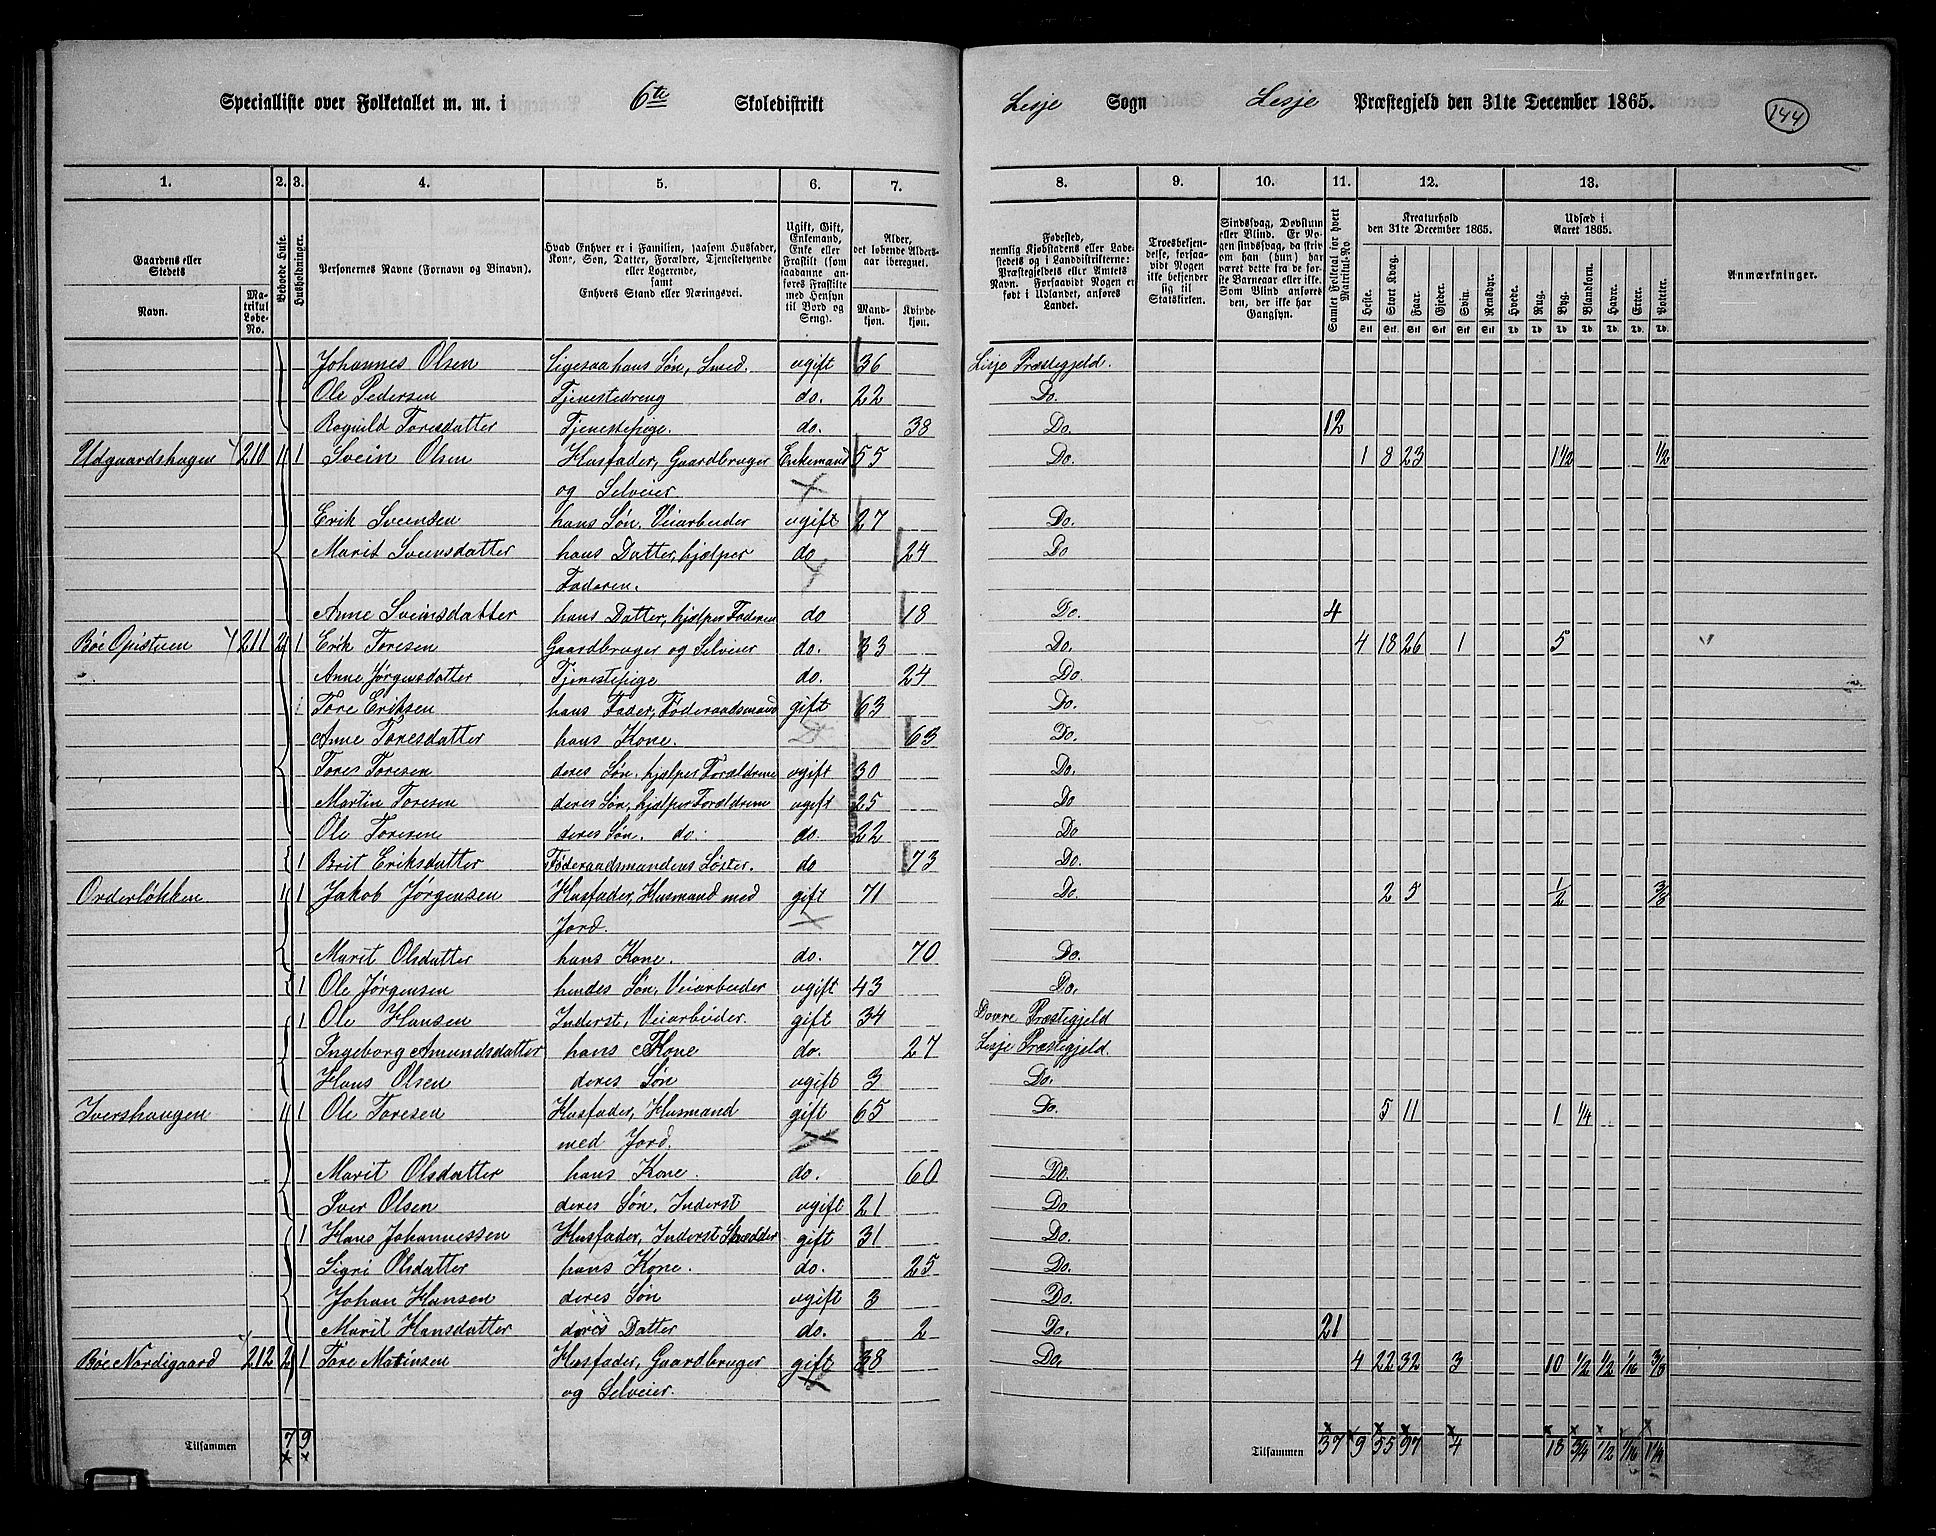 Specialliste over Folketallet m. m. i 6te Skoledistrikt Lesje Sogn Lesje Præstegjeld den 31te December 1865. 144
1. 2. 3. 4. 5. 6. 7. 8. 9. 10. 11. 12. 13.
Gaardens eller Stedets
Navn.
Matrikul Løbe-No.
Beboede Huse.
Husholdninger.
Personernes Navne (Fornavn og Binavn).
Hvad Enhver er i Familien, saasom Husfader, Kone, Søn, Datter, Forældre, Tjenestetyende eller Logerende, samt Enhvers Stand eller Næringsvei.
Ugift, Gift, Enkemand, Enke eller Fraskilt (som saadanne anføres Fraskilte med Hensyn til Bord og Seng).
Alder, det løbende Aldersaar iberegnet.
Mandkjøn.
Kvindekjøn.
Fødested, nemlig Kjøbstadens eller Ladestedets og i Landdistrikterne: Præstegjeldets eller Amtets Navn. Forsaavidt Nogen er født i Udlandet, anføres Landet.
Troesbekjendelse, forsaavidt Nogen ikke bekjender sig til Statskirken.
Sindssvag, Døvstum eller Blind. Er Nogen sindssvag, da skrives om han (hun) har været dette fra de første Barneaar eller ikke. Som Blind anføres den, der ikke har Gangsyn.
Samlet Folketal for hvert Matrikul-No.
Kreaturhold den 31te December 1865.
Heste. Stort Kvæg. Faar. Gjeder. Svin. Rensdyr.
Udsæd i Aaret 1865.
Hvede. Rug. Byg. Blandkorn. Havre. Erter. Poteter.
Anmærkninger.
Johannes Olsen Ligesaa hans Søn, Smed. ugift 36 Lesje Præstegjeld.
Ole Pedersen Tjenestedreng do. 22 Do.
Rognild Toresdatter Tjenestepige. do. 38 Do. 12
Udgaardshagen 210 1 1 Svein Olsen Husfader, Gaardbruger Enkemand 55 Do. 1 8 23 1½ ½
og Selveier.
Erik Sveinsen hans Søn, Veiarbeider ugift 27 Do.
Marit Sveinsdatter hans Datter, hjælper do 24 Do
Faderen.
Anne Sveinsdatter hans Datter, hjelper Faderen do 18 Do. 4
Bøe Opistuen 211 2 1 Erik Toresen Gaardbruger og Selveier do. 33 Do. 4 18 26 1 5
Anne Jørgensdatter Tjenestepige do. 24 Do.
1 Tore Eriksen hans Fader, Føderaadsmand gift 63 Do.
Anne Toresdatter hans Kone. 63 Do.
Tores Toresen deres Søn, hjelper Forældrene ugift 30 Do.
Martin Toresen deres Søn, hjelper Forældrene ugift 25 Do
Ole Toresen deres Søn. do. do. 22 Do
1 Brit Eriksdatter Føderaadsmandens Søster. do 73 Do.
Orderløkken 1 1 Jakob Jørgensen Husfader, Husmand med gift 71 Do. 2 5 ½ 3/8
Jord.
Marit Olsdatter hans Kone. do. 70 Do.
1 Ole Jørgensen hendes Søn, Veiarbeider ugift 43 Do.
1 Ole Hansen Inderst, Veiarbeider. gift 34 Dovre Præstegjeld
Ingeborg Amundsdatter hans Kone do. 27 Lesje Præstegjeld.
Hans Olsen deres Søn ugift 3 Do.
Ivershaugen 1 1 Ole Toresen Husfader, Husmand gift 65 Do. 5 11 1 ¼
med Jord.
Marit Olsdatter hans Kone. do. 60 Do.
Iver Olsen deres Søn, Inderst ugift 21 Do
1 Hans Johannessen Husfader, Inderst Skrædder gift 31 Do.
Sigri Olsdatter hans Kone. do. 25 Do.
Johan Hansen deres Søn ugift 3 Do.
Marit Hansdatter deres Datter do. 2 Do. 21
Bøe Nordigaard 212 2 1 Tore Matinsen Husfader, Gaardbruger gift 38 Do. 4 22 32 3 10 ½ ½ 1/16 3/8
og Selveier.
Tilsammen 7 9 Tilsammen 37 9 55 97 4 18 3/4 1/2 1/16 1¼